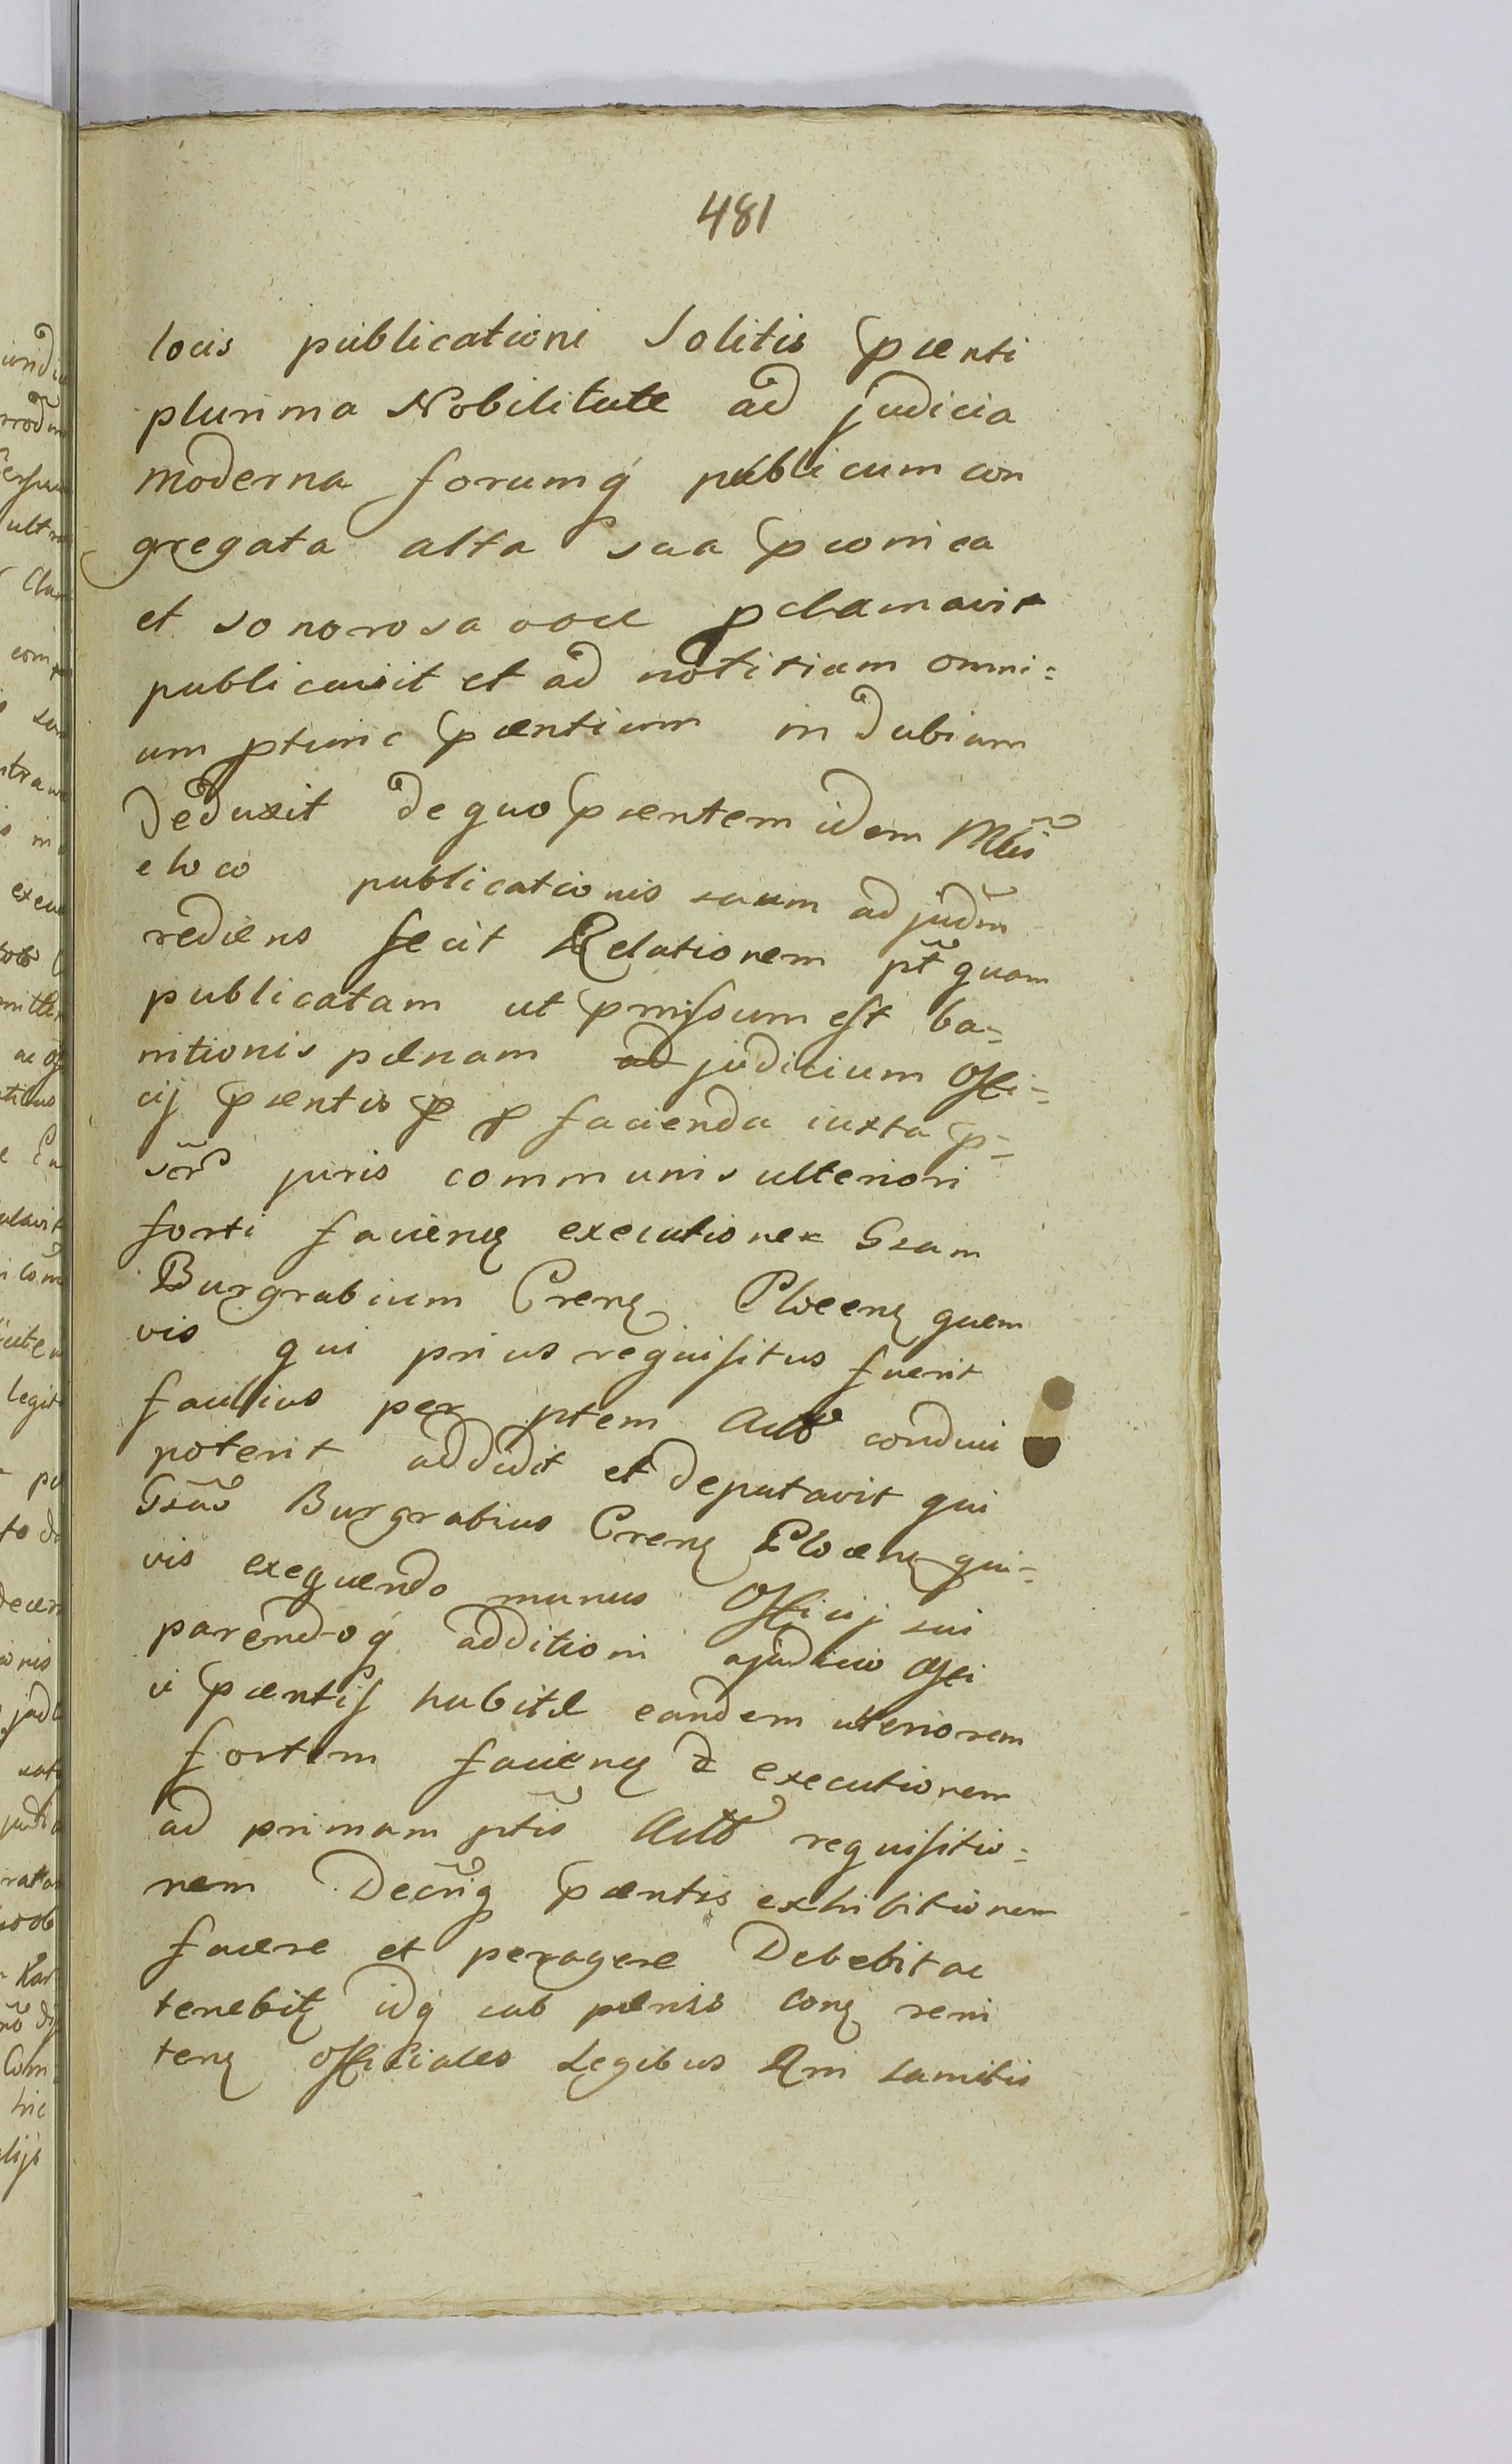 481
locis publicationi Solitis pnti
plurima Nobilitate ad judicia
moderna forumq publicum con
gregata alta sua pconica
et sonorosa voce pclamavit
publicavit et ad notitiam omni=
um ptunc pntium in dubiam
deduxit de quo pntem idem Mlis
e loco publicationis suum ad judm
rediens fecit Relationem pt quam
publicatam ut pmissum est ba=
nitionis pænam judicium Offi=
cij pntis p facienda iuxta p=
scr juris communis ulteriori
forti facienq executione Gsam
Burgrabium Crenq Ploccenq quem
vis qui prius requisitus fuerit
facilius per ptem Act conduci
poterit addidit et deputavit qui
Gsus Burgrabius Crenq Plocenq qui=
vis exequendo munus Officij sui
parendoq additioni a judicio Offi
ci pntis habitæ eandem ulteriorem
fortem facienq executionem
ad primam ptis Act requisitio=
nem Decriq pntis exhibitionem
facere et peragere Debebit ac
tenebitq idq sub pænis conq reni
tenq officiales Legibus Rni sancitis